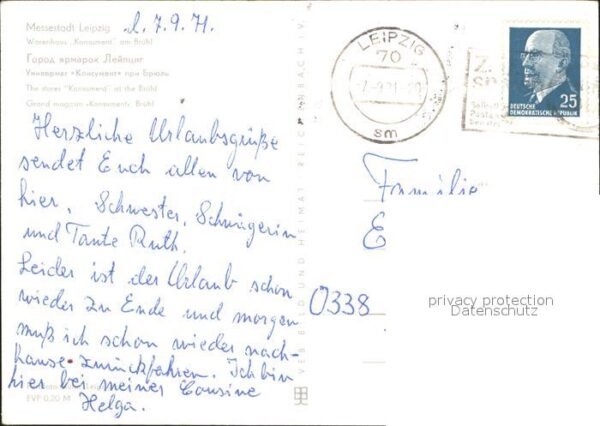 Messestadt Leipzig
L. 7.9.71.
Warenhaus „Konsument" am Brühl
Город ярмарок Лейпциг
Универмаг «Консумент» при Брюле
The stores "Konsument" at the Brühl
Grand magasin «Konsument» Brühl
Herzliche Urlaubsgrüße
sendet Euch allen von
hier, Schwester, Schwägerin
und Tante Ruth.
Leider ist der Urlaub schon
wieder zu Ende und morgen
muß ich schon wieder nach-
hause zurückfahren. Ich bin
hier bei meiner Cousine
Helga.
EVP 0,20 M
VEB BILD UND HEIMAT REICHENBACH I. V.
LEIPZIG
70
-7.-9.71-20
sm
25
DEUTSCHE
DEMOKRATISCHE REPUBLIK
Familie
E
0338
privacy protection
Datenschutz